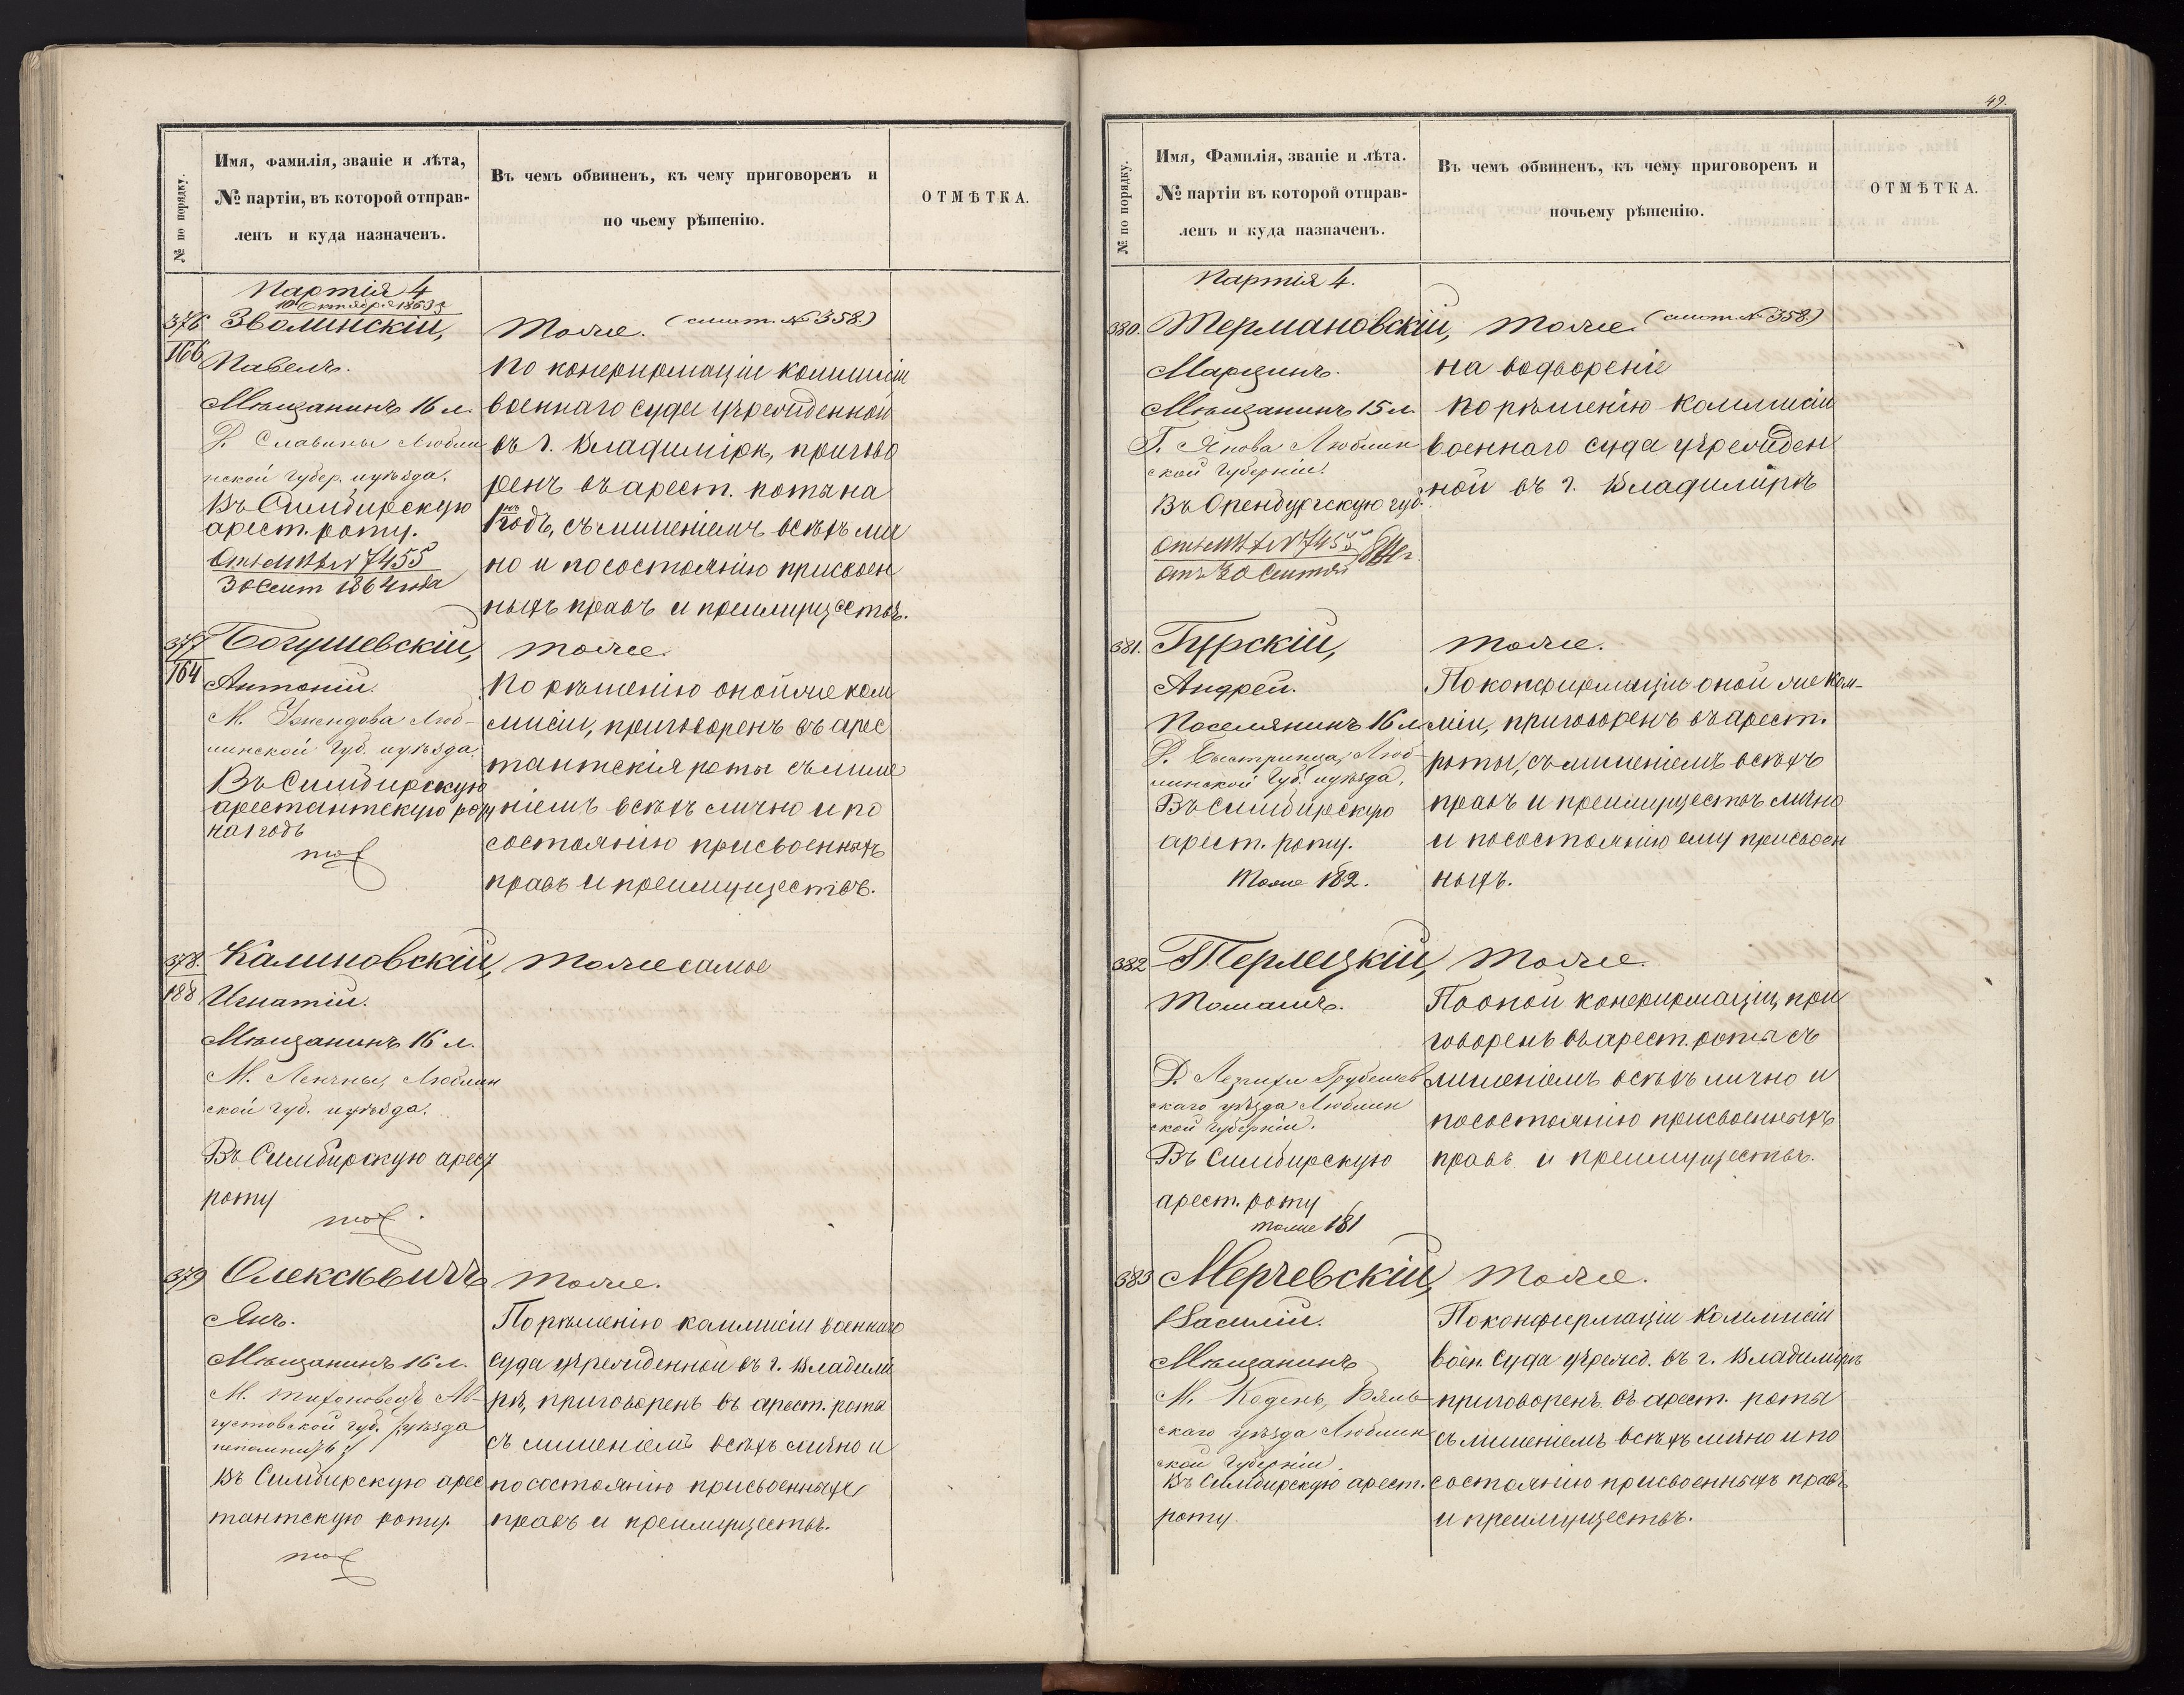 № по порядку.
Имя, Фамилія, званіе и лѣта,
№ партіи, въ которой отправ-
ленъ и куда назначенъ.
Въ чемъ обвиненъ, къ чему приговоренъ и
по чьему рѣшенію.
ОТМѢТКА.
Партія 4
10 Октября 1863 г
376
166
Зволинскій,
Павелъ.
Мѣщанинъ 16 л.
Д. Славины Любли
нской губер. и уѣзда.
Въ Симбирскую
арест. роту.
30 Сент 1864 года
Тоже. (смот. № 358.)
По конфирмаціи коммисіи
военнаго суда учрежденной
въ г. Владимірѣ, пригово
ренъ въ арест. роты на
1 годъ, съ лишеніемъ всѣхъ лич
но и по состоянію присвоен
ныхъ правъ и преимуществъ.
377
164
Богушевскій,
Антоній.
М. Люб-
линской Губ. и уѣзда.
Въ Симбирскую
арестантскую роту
на 1 годъ
Тоже.
По рѣшенію оной же ком
мисіи, приговоренъ въ арес
тантскія роты съ лише
ніемъ всѣхъ лично и по
состоянію присвоенныхъ
правъ и преимуществъ.
378.
188
Калиновскій,
Игнатій.
Мѣщанинъ 16 л.
М. Ленчны, Люблин
ской губ. и уѣзда.
Въ Симбирскую арест
роту
Тоже самое
379
Олексѣевичъ
Янъ.
Мѣщанинъ 16 л.
М. Тихоновецъ Ав-
густовской губ. (уѣзда
непомнитъ)
Въ Симбирскую арес
тантскую роту.
Тоже.
По рѣшенію коммисіи военнаго
суда учрежденной въ г. Владимі
рѣ, приговоренъ въ арест. роты
съ лишеніемъ всѣхъ лично и
по состоянію присвоенныхъ
правъ и преимуществъ.
49.
№ по порядку.
Имя, Фамилія, званіе и лѣта.
№ партіи въ которой отправ-
ленъ и куда назначенъ.
Въ чемъ обвиненъ, къ чему приговоренъ и
почьему рѣшенію.
ОТМѢТКА.
Партія 4.
380.
Термановскій,
Марцинъ.
Мѣщанинъ 15 л.
Г. Янова Люблин
ской Губерніи.
Въ Оренбургскую губ.
Тоже (смот. № 358)
на водвореніе
По рѣшенію коммисіи
военнаго суда учрежден
ной въ г. Владимірѣ
381.
Гурскій,
Андрей.
Поселянинъ 16 л
Д. Быстрица, Люб-
линской Губ. и уѣзда,
Въ Симбирскую
арест. роту.
Тоже 182.
Тоже.
По конфирмаціи оной же Ком-
міи, приговоренъ въ арест.
роты, съ лишеніемъ всѣхъ
правъ и преимуществъ лично
и по состоянію ему присвоен
ныхъ.
382
Терлецкій,
Томашъ.
Д. Грубешев
скаго уѣзда Люблин
ской Губерніи.
Въ Симбирскую
арест. роту
тоже 181
Тоже.
По оной конфирмаціи, при
говоренъ въ арест. роты съ
лишеніемъ всѣхъ лично и
по состоянію присвоенныхъ
правъ и преимуществъ.
383
Мерчевскій,
Василій.
Мѣщанинъ
М. Кодень, Бяль-
скаго уѣзда Люблин
ской Губерніи.
Въ Симбирскую арест.
роту.
Тоже.
По конфирмаціи Коммисіи
воен. суда учрежд. въ г. Владимірѣ
приговоренъ въ арест. роты
съ лишеніемъ всѣхъ лично и по
состоянію присвоенныхъ правъ
и преимуществъ.